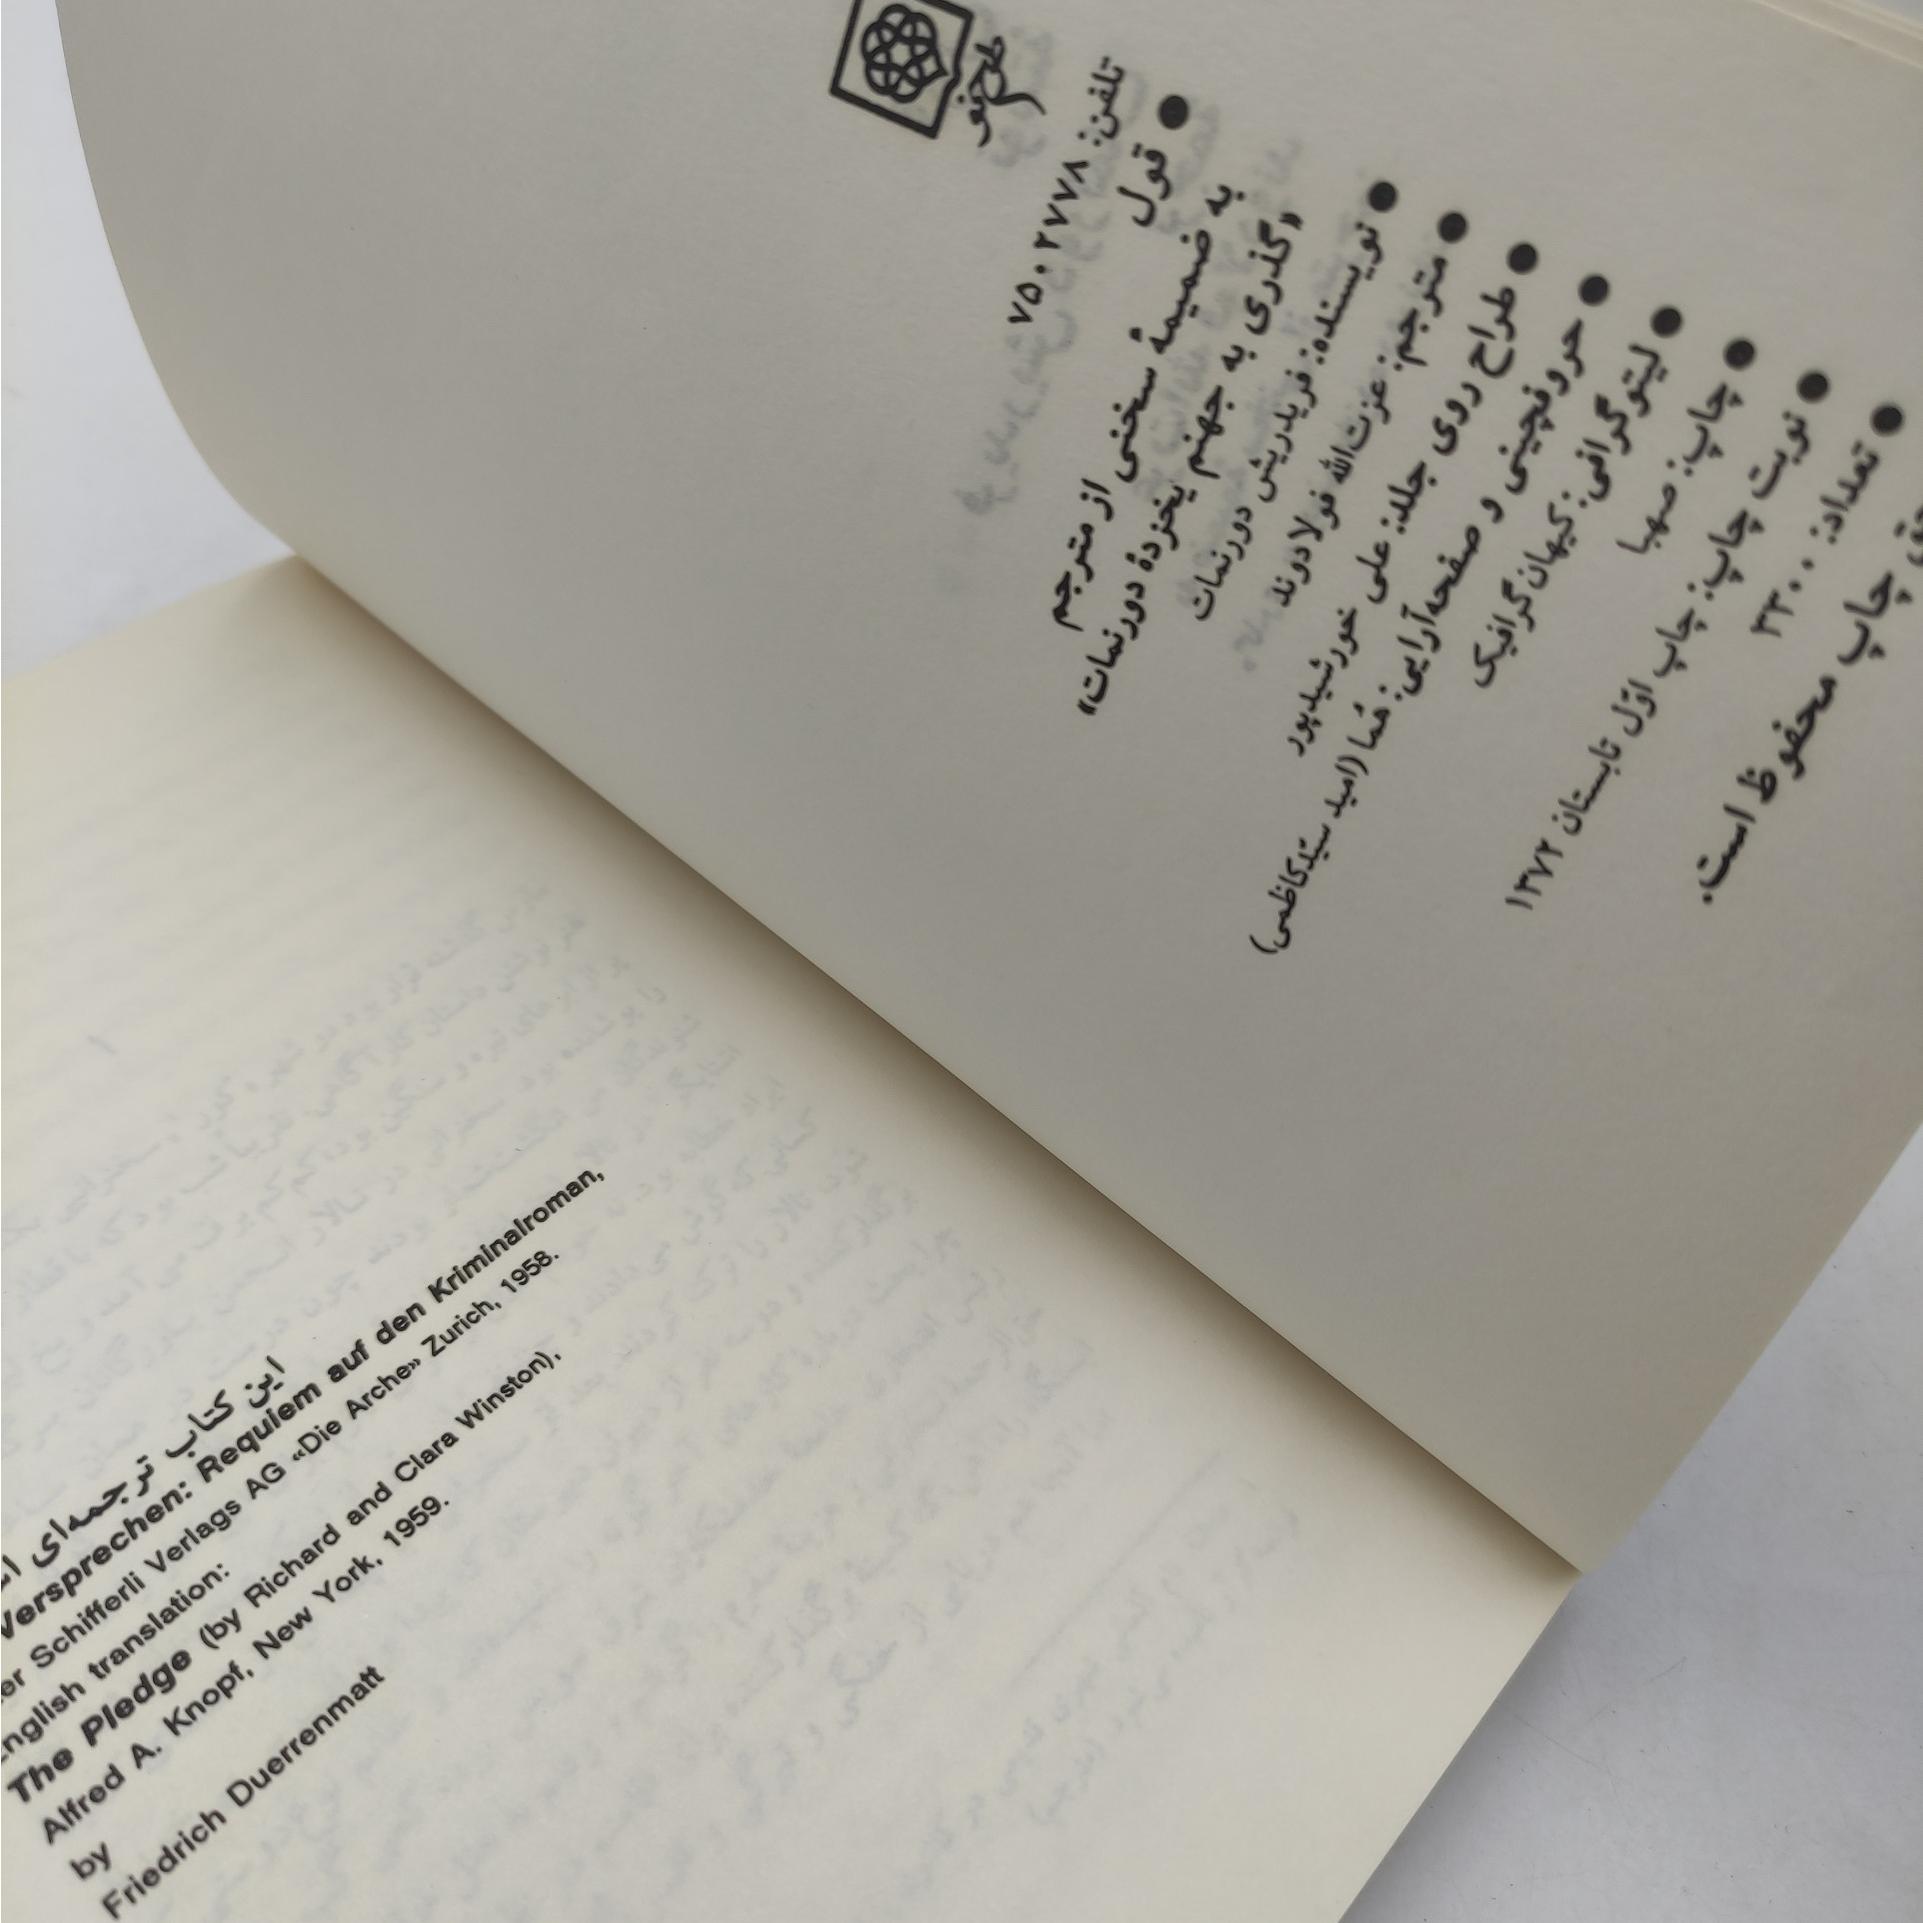 طرح نو
تلفن: ۷۵۰۲۷۷۸
● قول
به ضمیمهٔ سخنی از مترجم
«گذری به جهنم یخزدهٔ دورنمات»
● نویسنده: فریدریش دورنمات
● مترجم: عزت‌الله فولادوند
● طراح روی جلد: علی خورشیدپور
● حروفچینی و صفحه‌آرایی: هُما (امید سیّدکاظمی)
● لیتوگرافی: کیهان‌گرافیک
● چاپ: صهبا
● نوبت چاپ: چاپ اوّل تابستان ۱۳۷۲
● تعداد: ۳۳۰۰
چاپ محفوظ است.
این کتاب ترجمه‌ای
Versprechen: Requiem auf den Kriminalroman,
Schifferli Verlags AG «Die Arche» Zurich, 1958.
English translation:
The Pledge (by Richard and Clara Winston),
Alfred A. Knopf, New York, 1959.
by
Friedrich Duerrenmatt